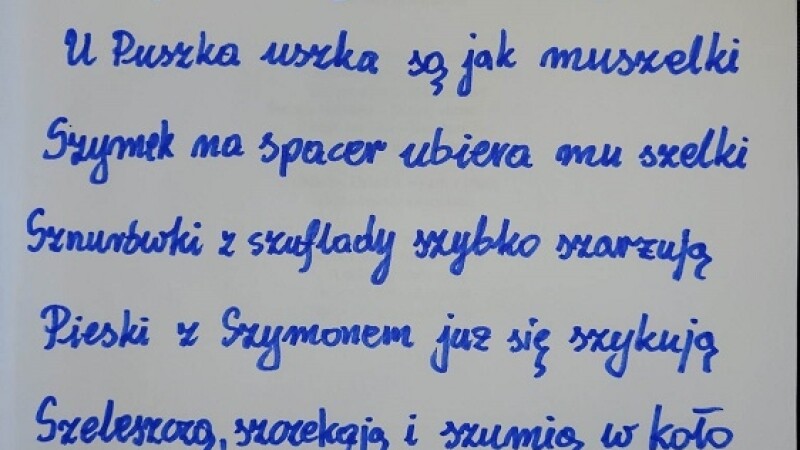 U Puszka uszka są jak muszelki
Szymek na spacer ubiera mu szelki
Sznurówki z szuflady szybko szarżują
Pieski z Szymonem już się szykują
Szeleszczą, szczekają i szumią w koło